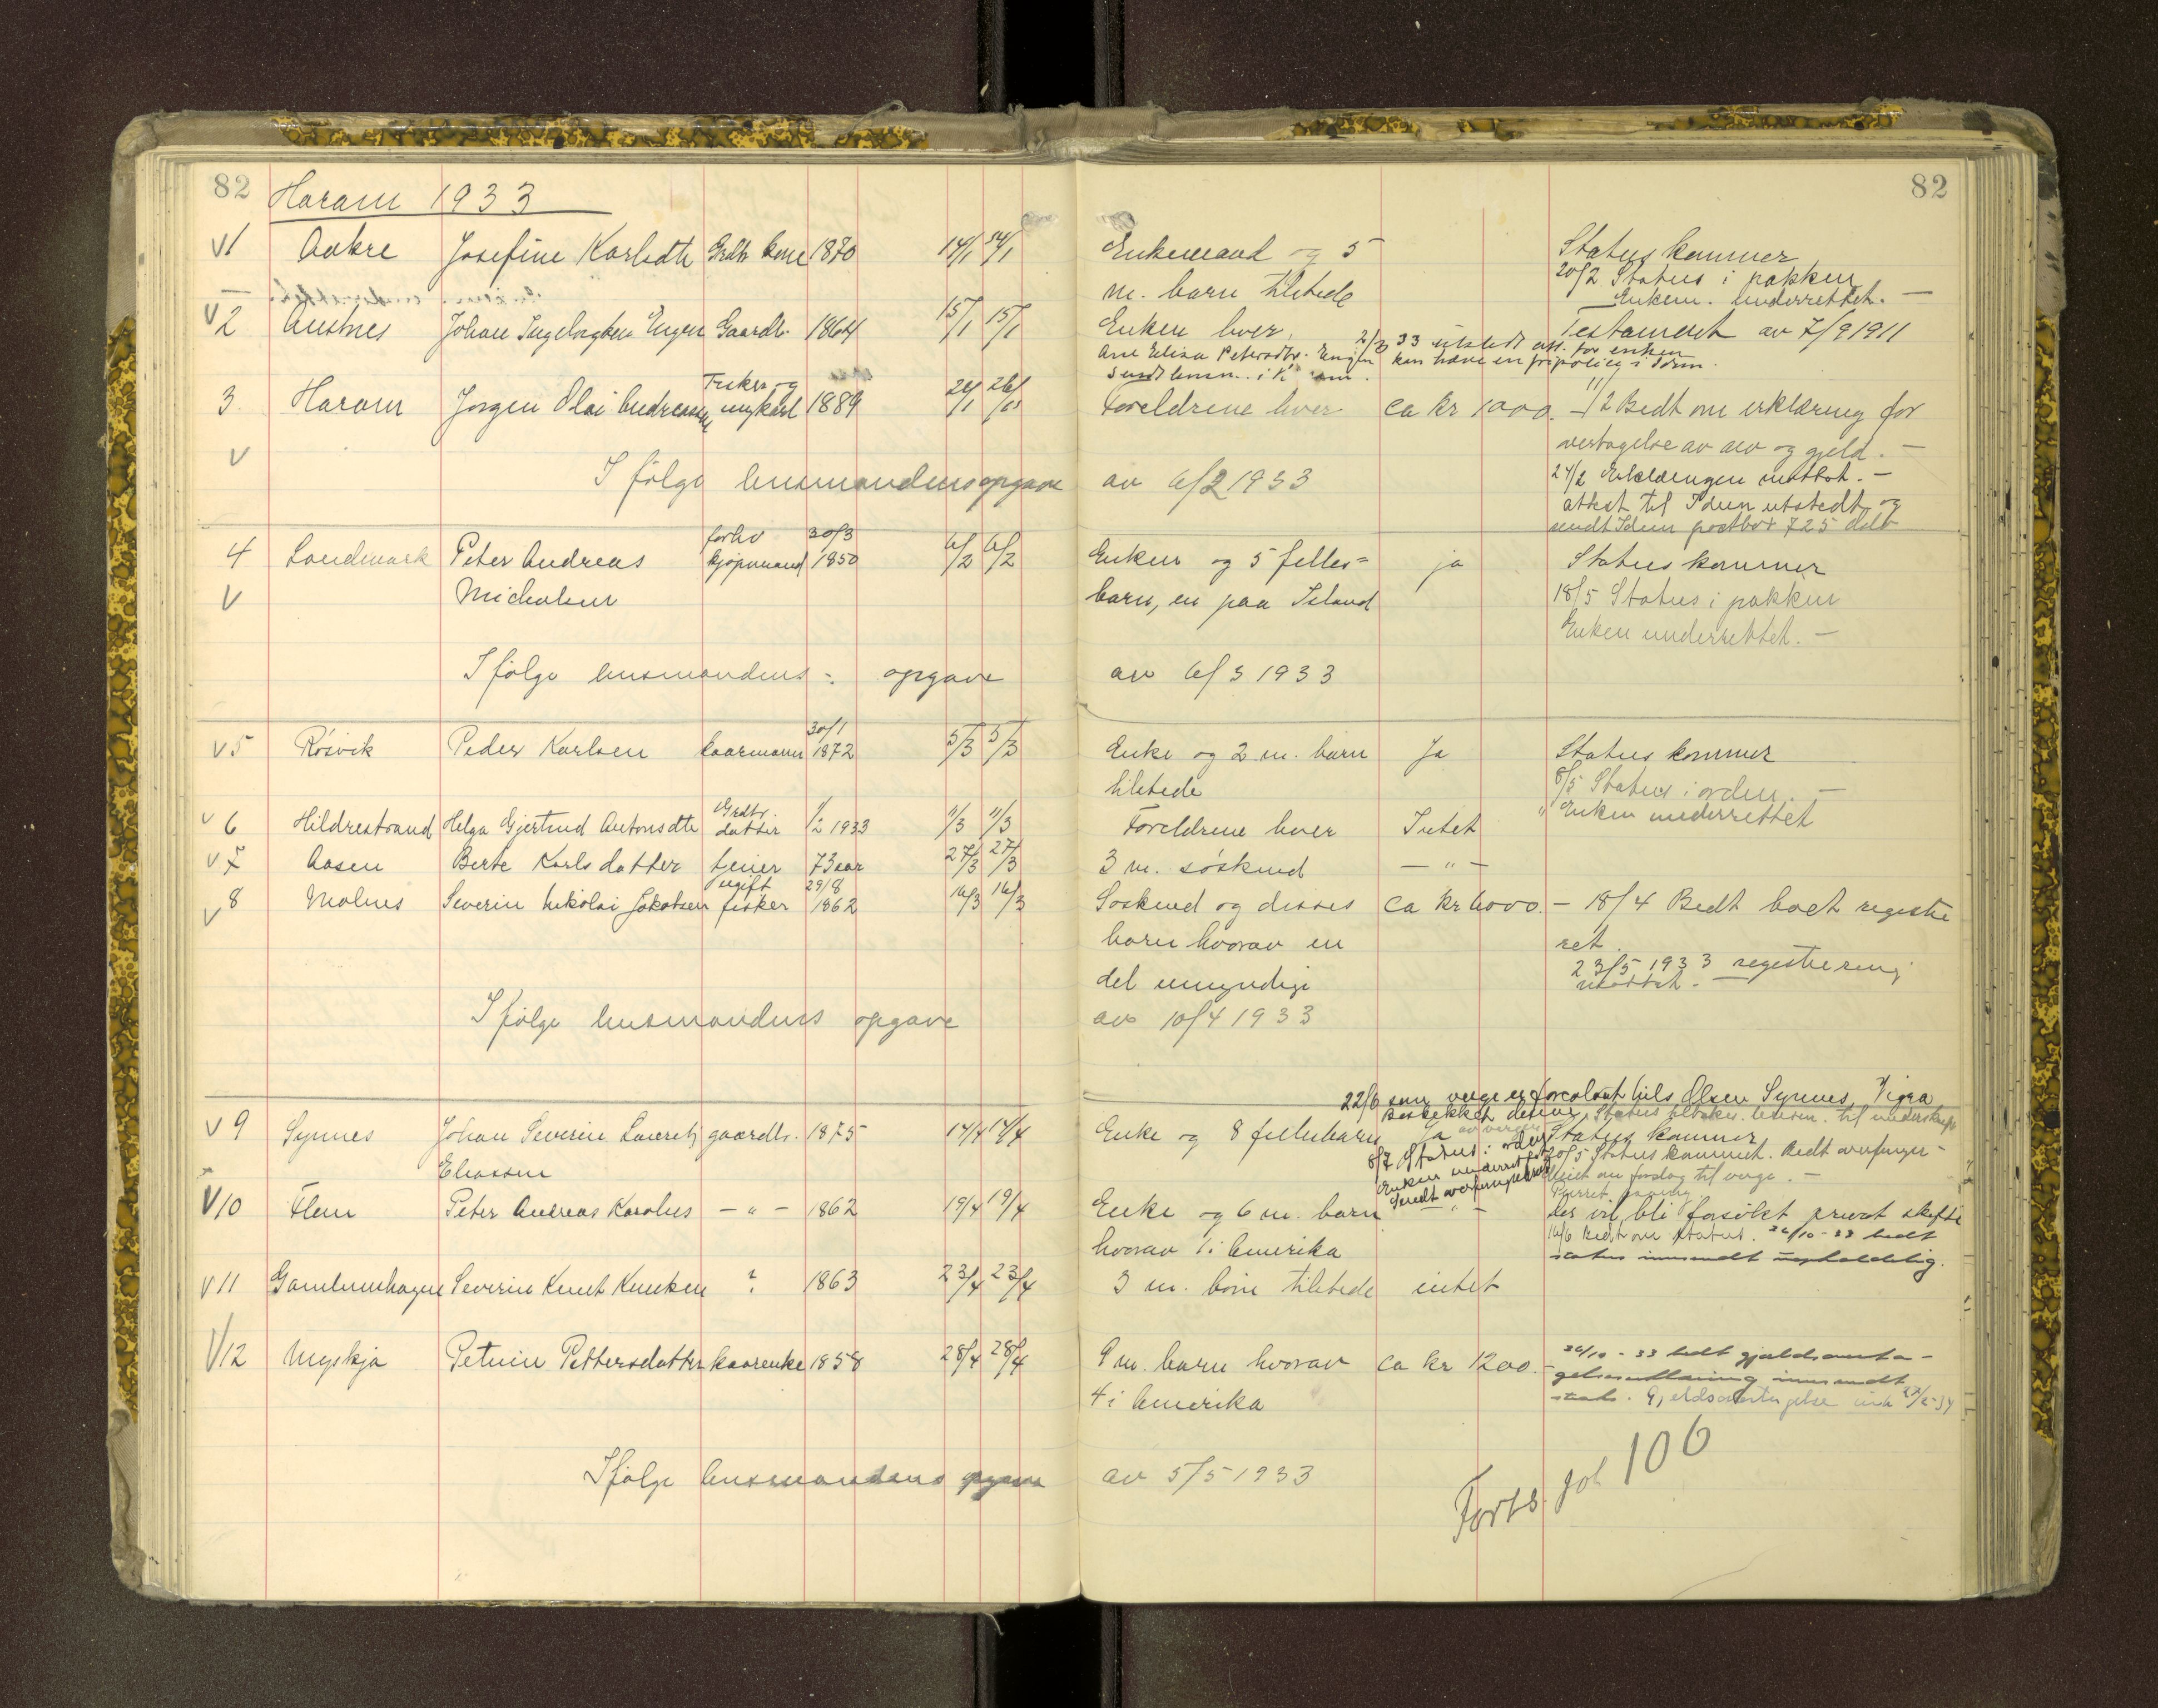 82
82
Haram 1933
V1 Aakre Josefine Karlsdtr Grdbr kone 1870 14/1 14/1 Enkemand og 5 Status kommer
m. barn tilstede 20/2 Status i pakken
Enkem. underrettet. —
V2 Austnes Johan Ingebrigtsen Engen Gaardbr. 1864 15/1 15/1 Enken lever Testament av 7/9 1911
33 utstedt att. for enken
Ane Elisa Petersdtr. Engen kan hæve en fripolice i Idun.
Sendt lensm.
3. Haram Jørgen Olai Andreassen Fisker og ungkarl 1889 26/1 26/1 Foreldrene lever ca kr 1000. — 11/2 Bedt om erklæring for
V overtagelse av arv og gjeld. —
I følge lensmandens opgave av 6/2 1933
24/2 Erklæringen mottat. —
attest til Idun utstedt og
sendt Idun postbox 725
4 Landmark Peter Andreas forhv kjøpmand 30/3 1850 6/2 6/2 Enken og 5 felles= ja Status kommer
V Michalsen barn, en paa Island 18/5 Status i pakken
Enken underrettet. —
I følge lensmandens opgave av 6/3 1933
V5 Røsvik Peder Karlsen kaarmann 30/1 1872 5/3 5/3 Enke og 2 m. barn Ja Status kommer
tilstede 8/5 Status i orden. —
" Enken underrettet
V6 Hildrestrand Helga Gjertrud Antonsdtr Grdbr. datter 1/2 1933 11/3 11/3 Foreldrene lever Intet
V7 Aasen Berte Karlsdatter tjener 73 aar 27/3 27/3 3 m. søskend — " —
8 Molnes Severin Nikolai Jakobsen ugift fisker 29/8 1862 16/3 16/3 Søskend og disses ca kr 6000. — 18/4 Bedt boet registre
V barn hvorav en ret.
del umyndige 23/5 1933 registrering
mottat. —
I følge lensmandens opgave av 10/4 1933
22/6 som verge er foreslaat Nils Olsen Synnes, Vigra
Beskikket denne. Status tilbake lensm. til underskrift
av vergen
V9 Synnes Johan Severin Lauretz gaardbr. 1875 14/4 14/4 Enke og 8 fellesbarn Ja Status kommer
Eliassen 8/7 Status i orden 20/5 Status kommet. Bedt overformyn-
Enken underrettet deriet om forslag til verge. —
Sendt overformynderiet
Purret
V10 Flem Peter Andreas Karolus — " — 1862 19/4 19/4 Enke og 6 m. barn — " — Der vil bli forsøkt privat skifte
hvorav 1 i Amerika 16/6 Bedt om status. 26/10-33 bedt
status innsendt uopholdelig.
V11 Gamlemshaugen Severin Knut Knutsen ? 1863 23/4 23/4 3 m. børn tilstede intet
V12 Myskja Petrine Pettersdatter kaarenke 1858 28/4 28/4 9 m. barn hvorav ca kr 1200. — 26/10-33 bedt gjældsoverta-
4 i Amerika gelseserklæring innsendt
straks. Gjeldsovertagelse
I følge lensmandens opgave av 5/5 1933
Forts. fol 106